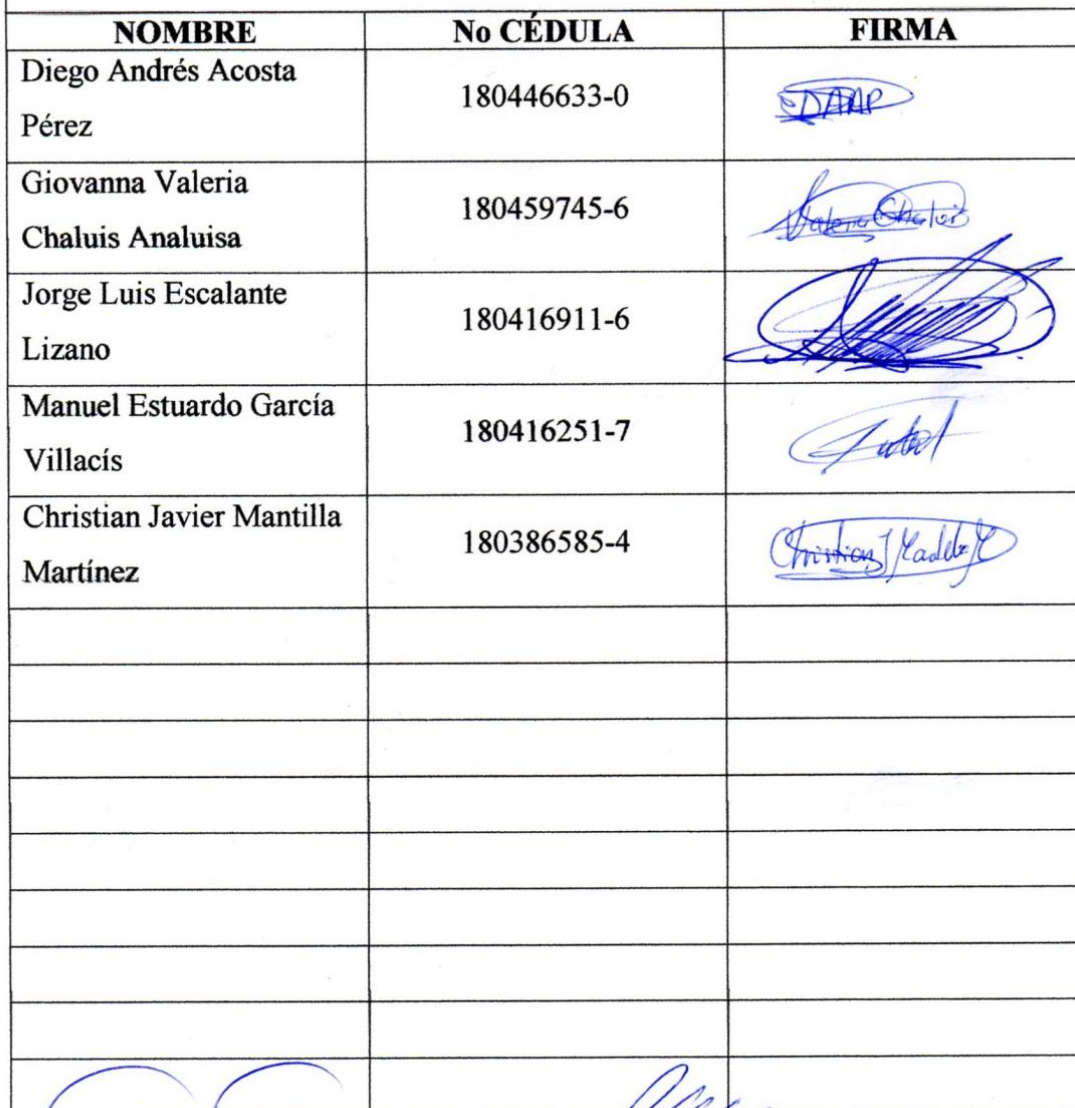 NOMBRE No CÉDULA FIRMA
Diego Andrés Acosta
Pérez
180446633-0
DAAP
Giovanna Valeria
Chaluis Analuisa
180459745-6
Valeria Chaluis
Jorge Luis Escalante
Lizano
180416911-6
Manuel Estuardo García
Villacís
180416251-7
Christian Javier Mantilla
Martínez
180386585-4
Christian J